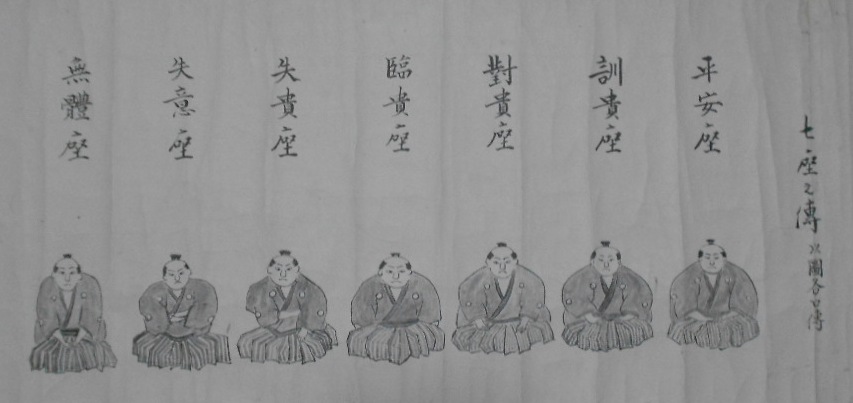 七座之傳 以圖各口傳
平安座
訓貴座
對貴座
臨貴座
失貴座
失意座
無體座